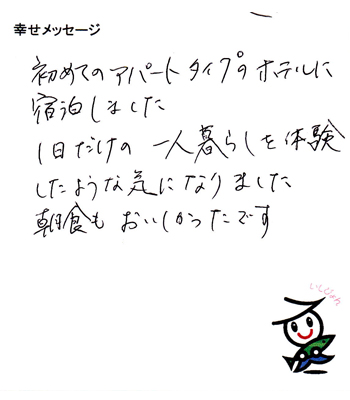 幸せメッセージ
初めてのアパートタイプのホテルに
宿泊しました
1日だけの 一人暮らしを体験
したような気になりました
朝食も おいしかったです